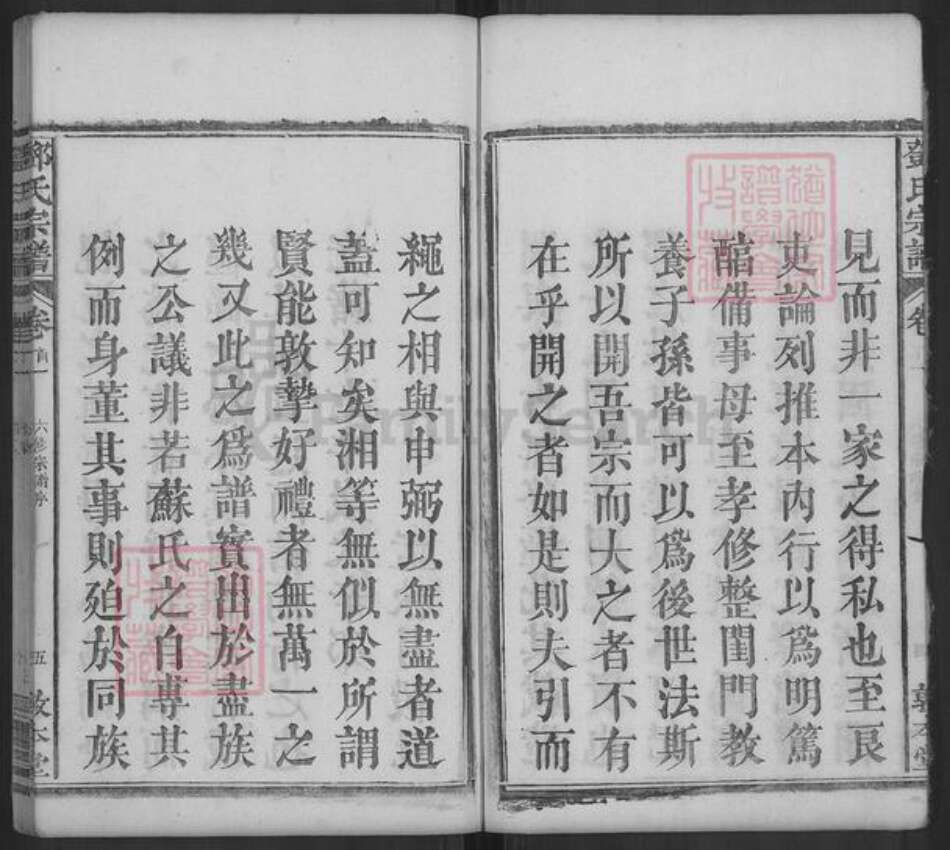 見而非一家之得私也至艮
吏論列推本內行以爲明篤
醕備事母至孝修整閨門教
養子孫皆可以爲後世法斯
所以開吾宗而大之者不有
在乎開之者如是則夫引而
繩之相與申弼以無盡者道
葢可知矣湘等無似於所謂
賢能敦摯好禮者無萬一之
幾又此之爲譜實出於盡族
之公議非若蘇氏之自專其
例而身董其事則廹於同族
鄧氏宗譜
卷首一
六修宗譜序
五
敦本堂
FamilySearch